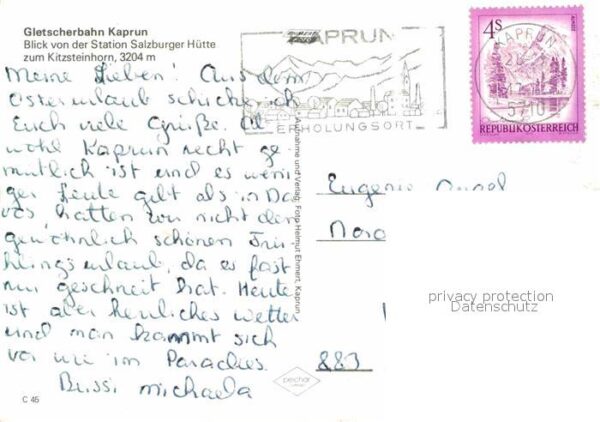 Gletscherbahn Kaprun
Blick von der Station Salzburger Hütte
zum Kitzsteinhorn, 3204 m
Meine Lieben! Aus dem
Osterurlaub schicke ich
Euch viele Grüße. Ob
wohl Kaprun recht ge
mütlich ist und es weni
ger Leute gibt als in Da
vos, hatten wir nicht den
gewöhnlich schönen Frü
hlingsurlaub, da es fast
nur geschneit hat. Heute
ist aber herrliches Wetter
und man kommt sich
vor wie im Paradies.
Bussi Michaela
C 45
Aufnahme und Verlag: Foto Helmut Ehmert, Kaprun
KAPRUN
ERHOLUNGSORT
4S
REPUBLIK ÖSTERREICH
KAPRUN
5710
Eugenie
883
privacy protection
Datenschutz